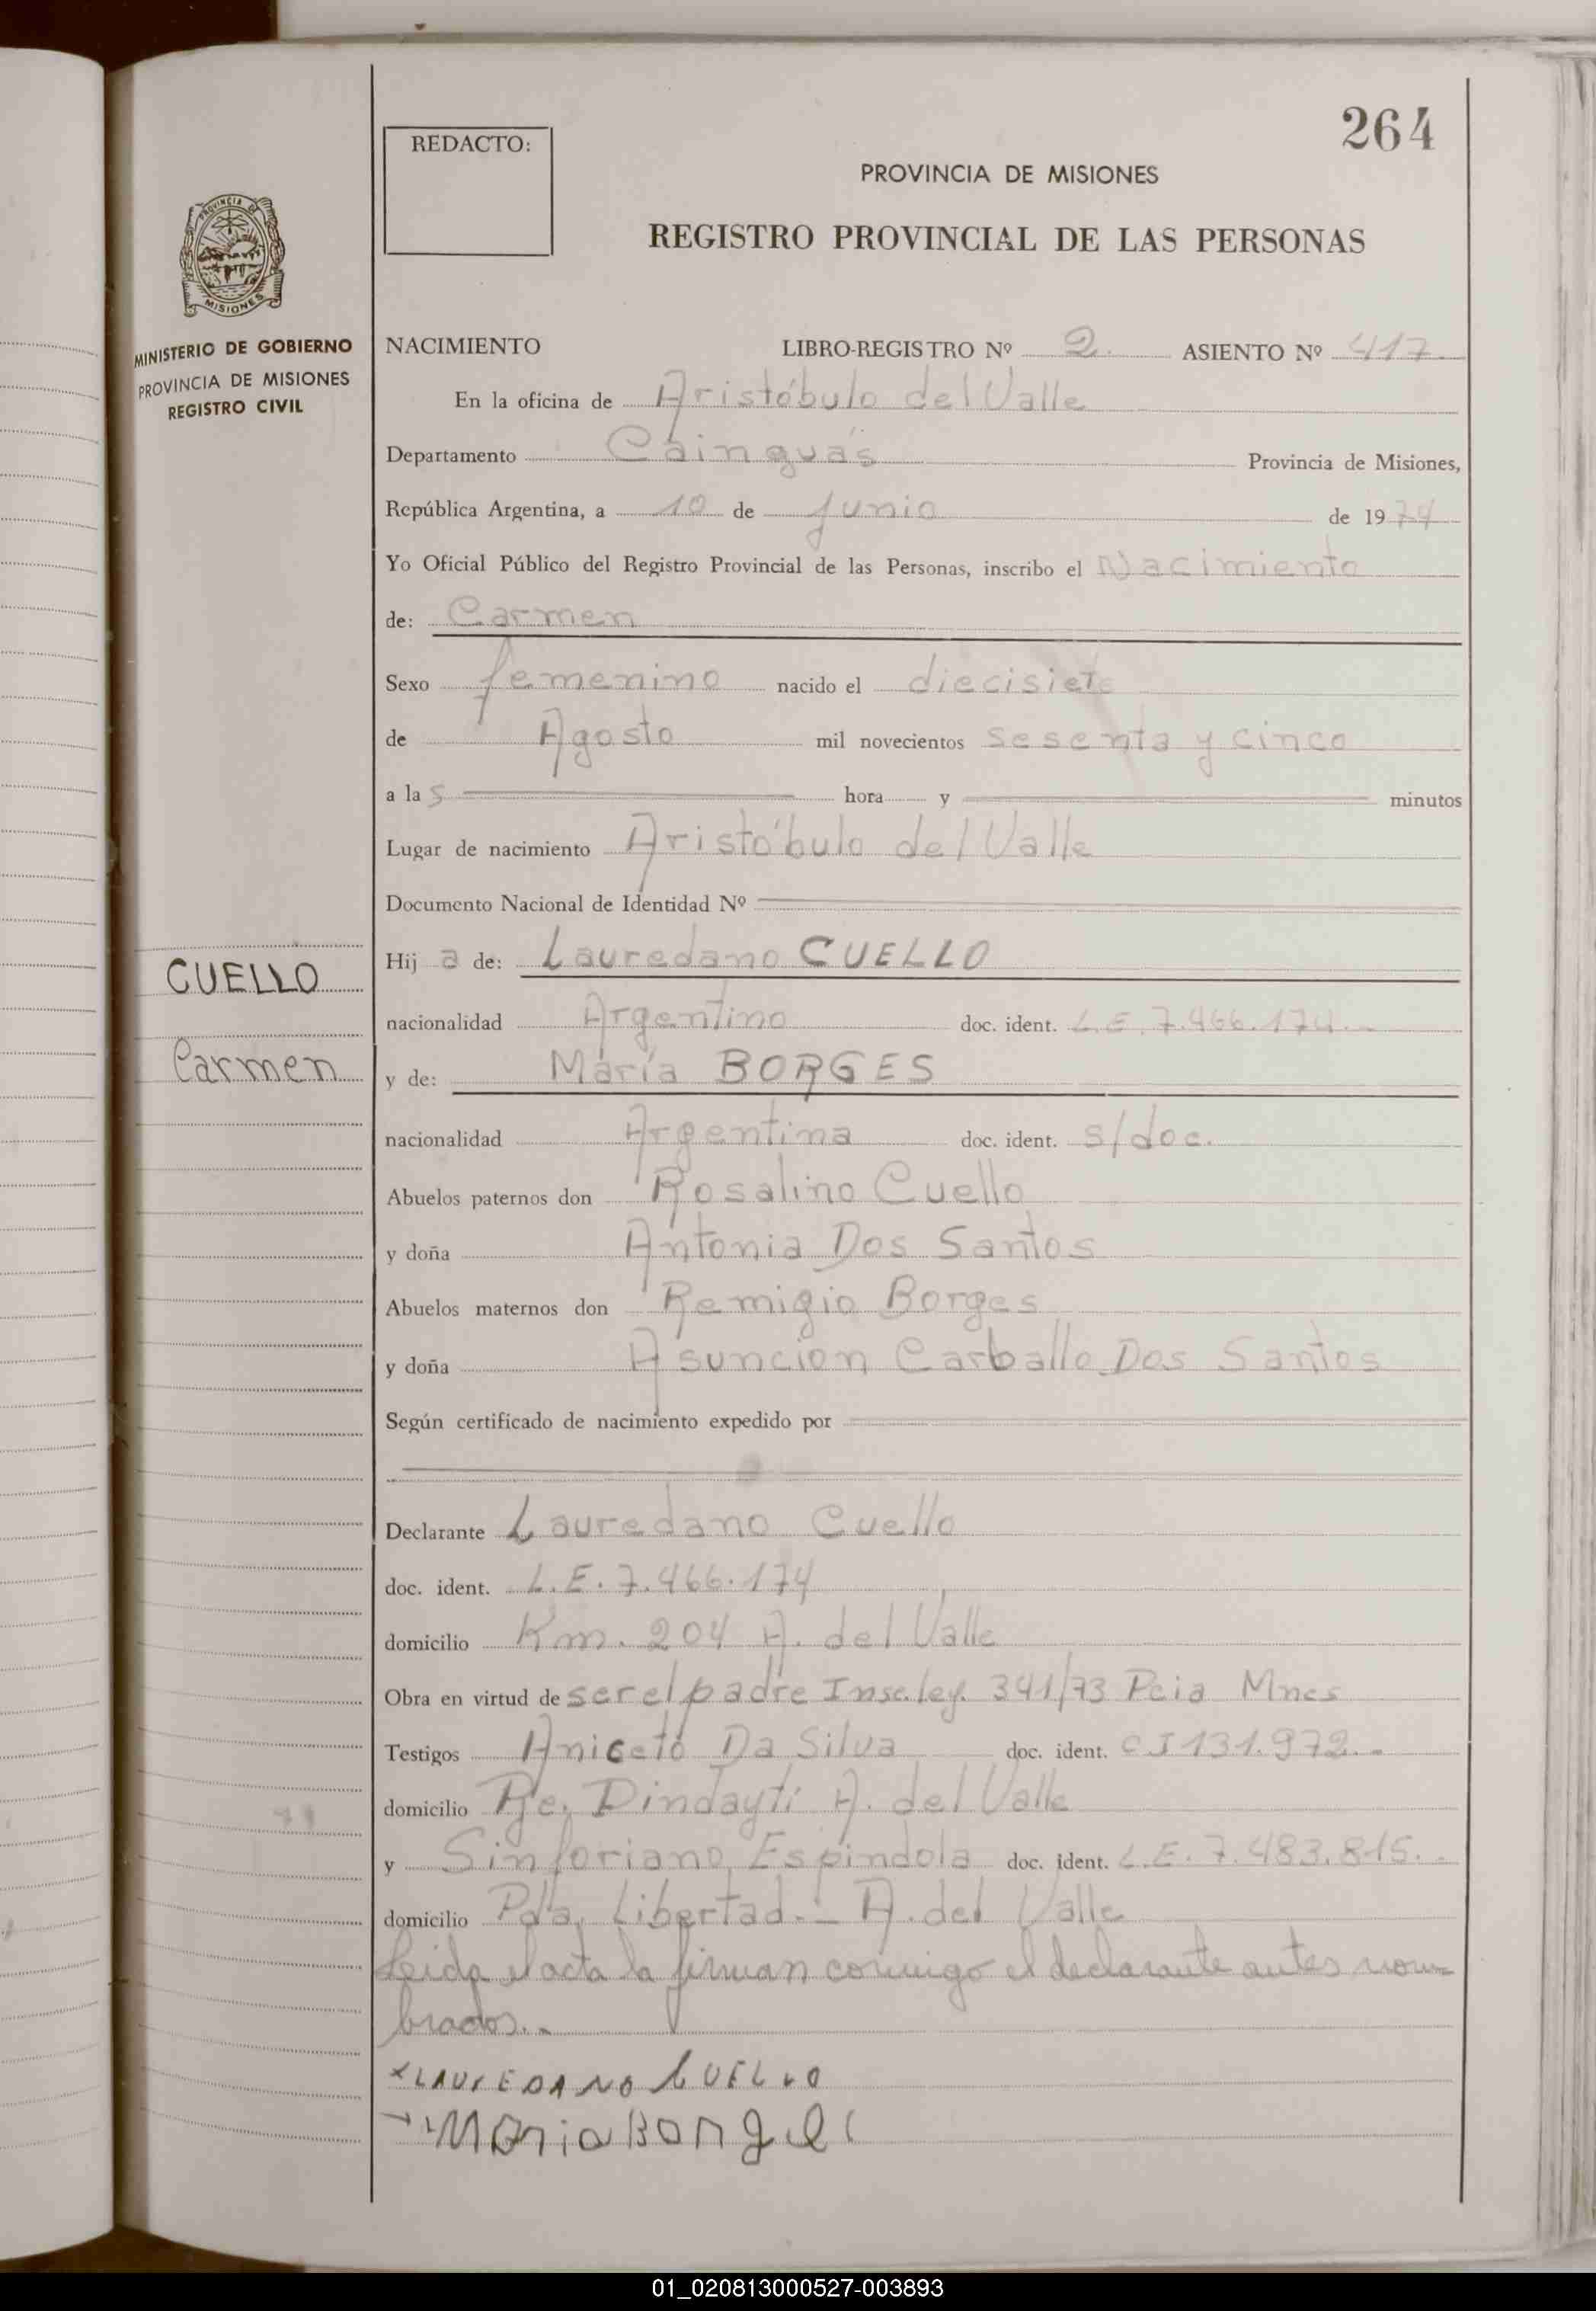 264
REDACTO:
PROVINCIA DE MISIONES
REGISTRO PROVINCIAL DE LAS PERSONAS
PROVINCIA DE
MISIONES
MINISTERIO DE GOBIERNO
PROVINCIA DE MISIONES
REGISTRO CIVIL
NACIMIENTO LIBRO-REGISTRO Nº 2. ASIENTO Nº 417.
En la oficina de Aristóbulo del Valle
Departamento Cainguás Provincia de Misiones,
República Argentina, a 10 de junio de 1974
Yo Oficial Público del Registro Provincial de las Personas, inscribo el Nacimiento
de: Carmen
Sexo femenino nacido el diecisiete
de Agosto mil novecientos sesenta y cinco
a las hora y minutos
Lugar de nacimiento Aristóbulo del Valle
Documento Nacional de Identidad Nº
CUELLO
Carmen
Hija de: Lauredano CUELLO
nacionalidad Argentino doc. ident. L.E. 7.466.174..
y de: María BORGES
nacionalidad Argentina doc. ident. s/doc.
Abuelos paternos don Rosalino Cuello
y doña Antonia Dos Santos
Abuelos maternos don Remigio Borges
y doña Asuncion Carballo Dos Santos
Según certificado de nacimiento expedido por
Declarante Lauredano Cuello
doc. ident. L.E. 7.466.174
domicilio Km. 204 A. del Valle
Obra en virtud de ser el padre Insc. ley. 341/73 Pcia Mnes
Testigos Aniceto Da Silva doc. ident. CI 131.972..
domicilio Pje. Dindayti A. del Valle
y Sinforiano Espindola doc. ident. L.E. 7.483.815..
domicilio Pda. Libertad.- A. del Valle
Leida el acta la firman conmigo el declarante antes nom-
brados..
x LAUREDANO CUELLO
Maria Borges
01_020813000527-003893